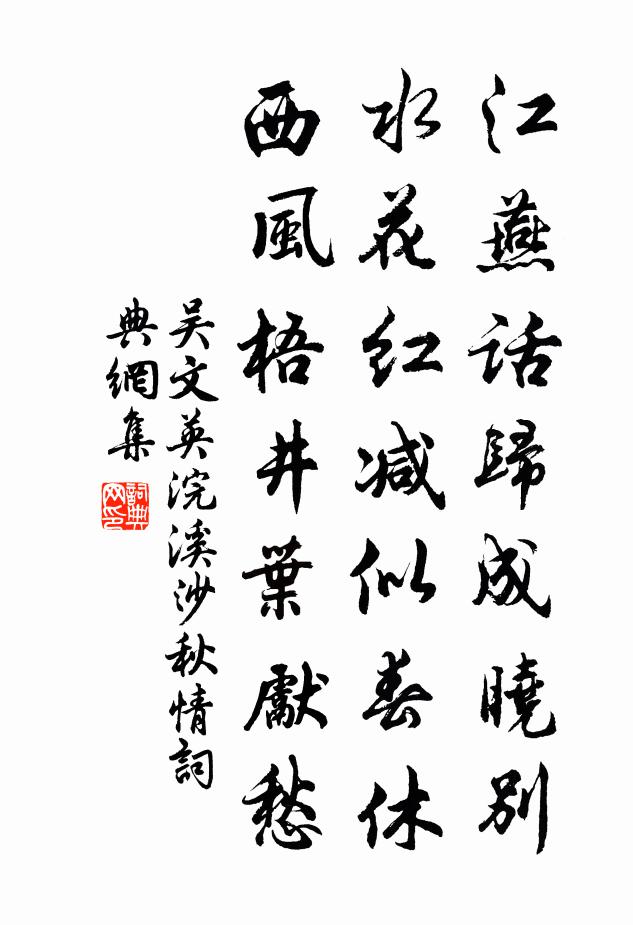 江燕話歸成曉別
水花红减似春休
西風梧井葉獻愁
吴文英浣溪沙秋情詞
典網集
詞典
网印